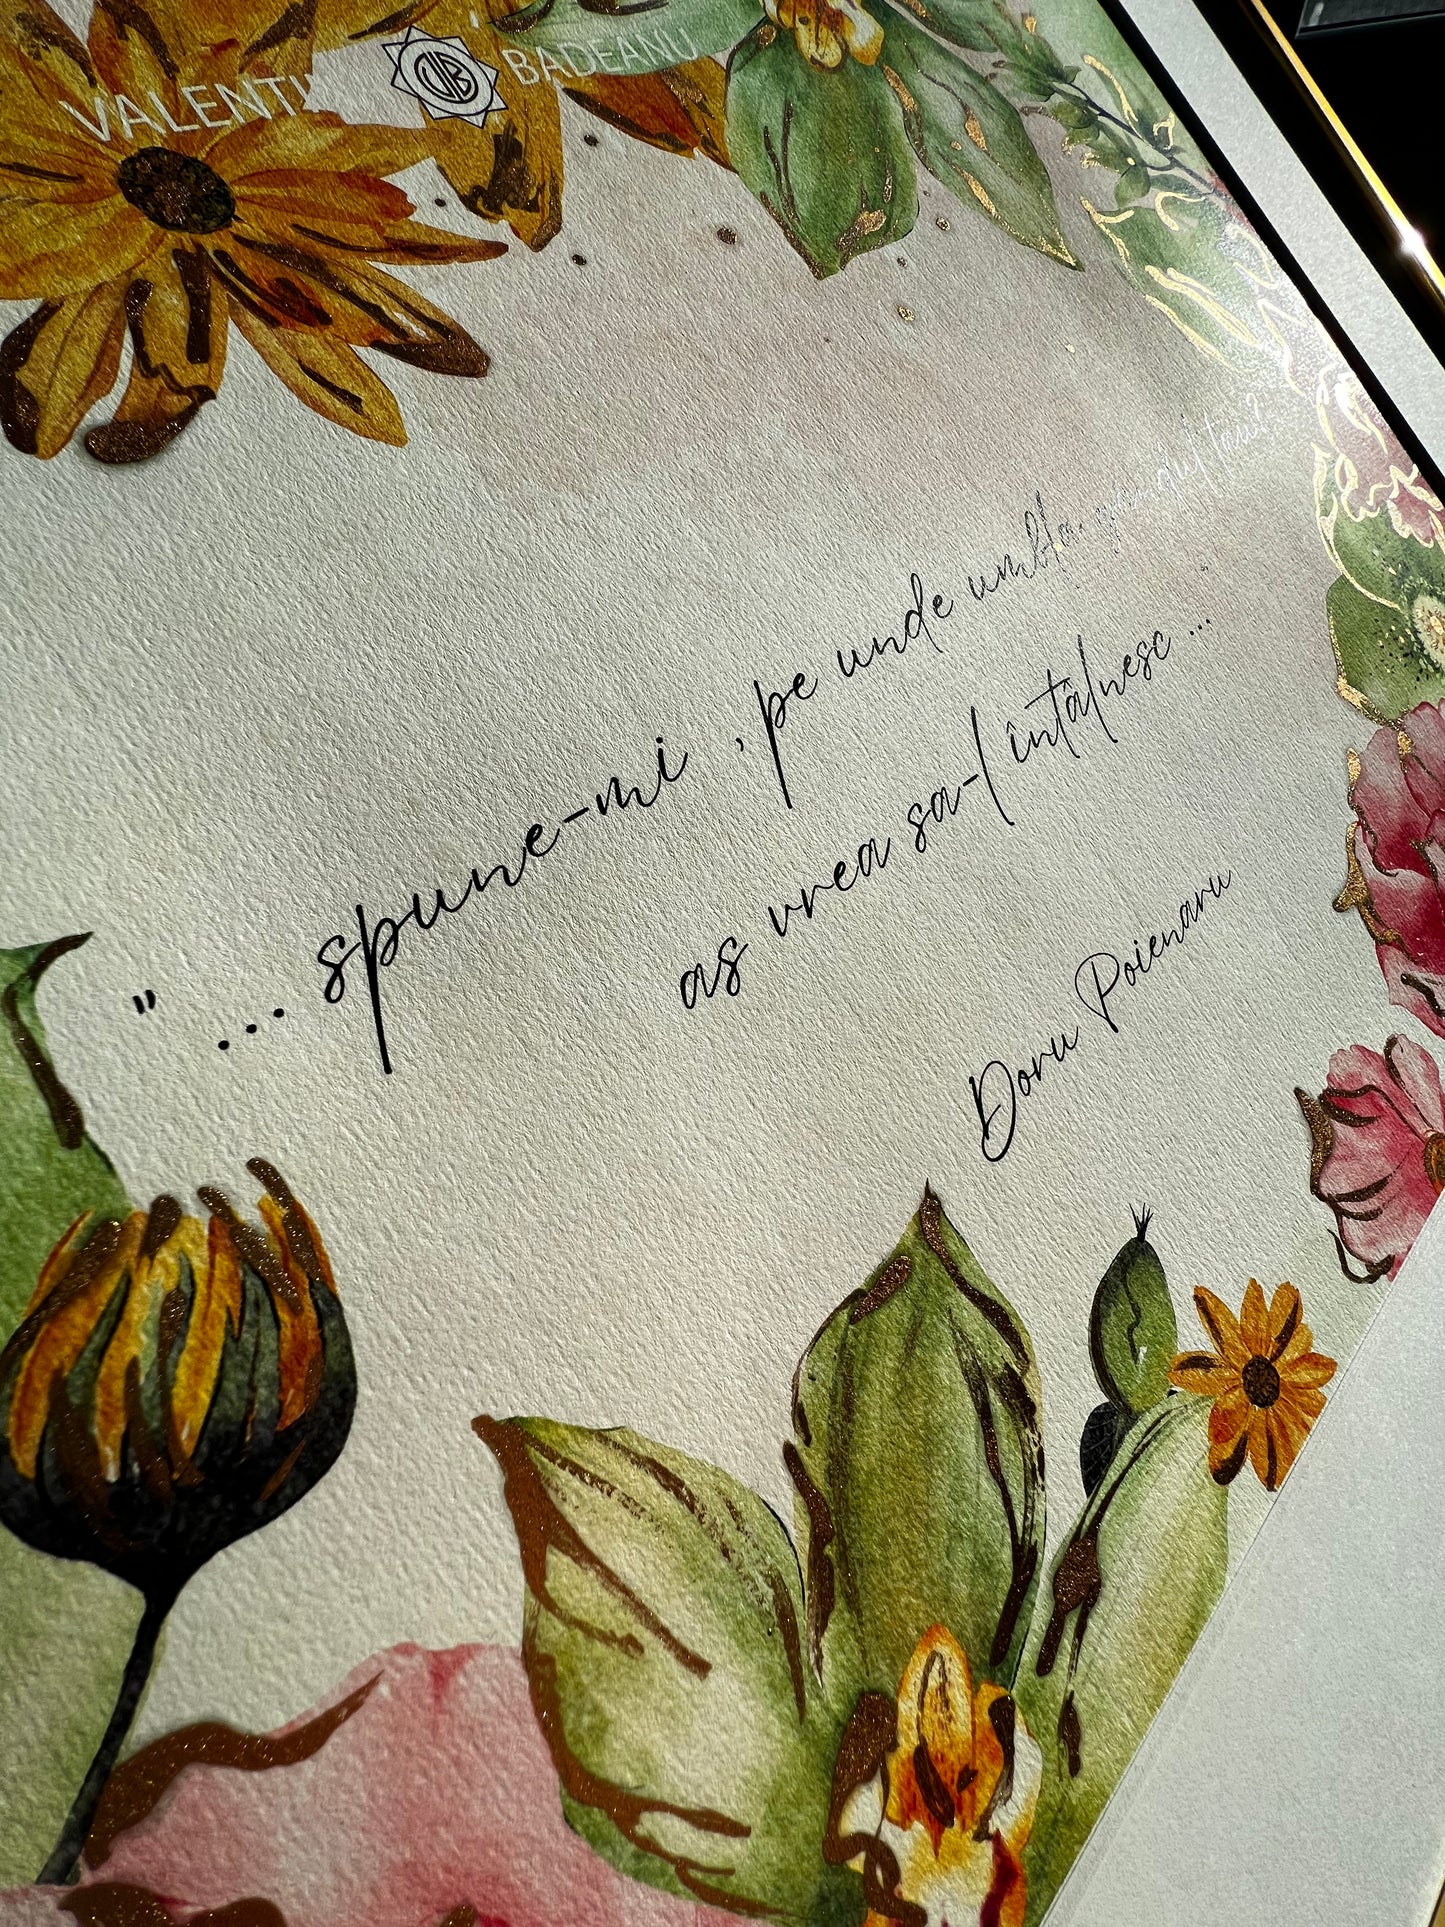 VALENTI VB BADEANU
"... spune-mi , pe unde umbla, gandul tau?
as vrea sa-l întâlnesc ...
Doru Poienaru